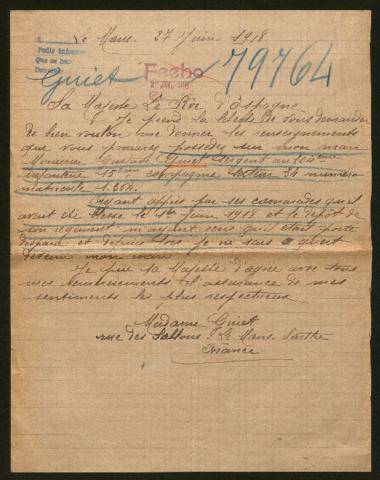 Le Mans. 27 Juin 1918
Fecho
Guiet 79764
Sa Majesté Le Roi d'Espagne
Je prend la liberté de vous demander
de bien vouloir me donner les renseignements
que vous pouvez posséder sur mon mari
Monsieur Gustave Guiet sergent au 104ème
infanterie 15ème compagnie secteur 34 numéro
matricule 1.364.
Ayant appris par ses camarades qu'il
avait été blessé le 1er Juin 1918 et le dépôt de
son régiment m'ayant écris qu'il était porté
disparu et depuis lors je ne sais qu'est
devenu mon mari
Je prie sa Majesté d'agréer avec tous
mes remerciements l'assurance de mes
sentiments les plus respectueux
Madame Guiet
rue des Sablons Le Mans Sarthe
France